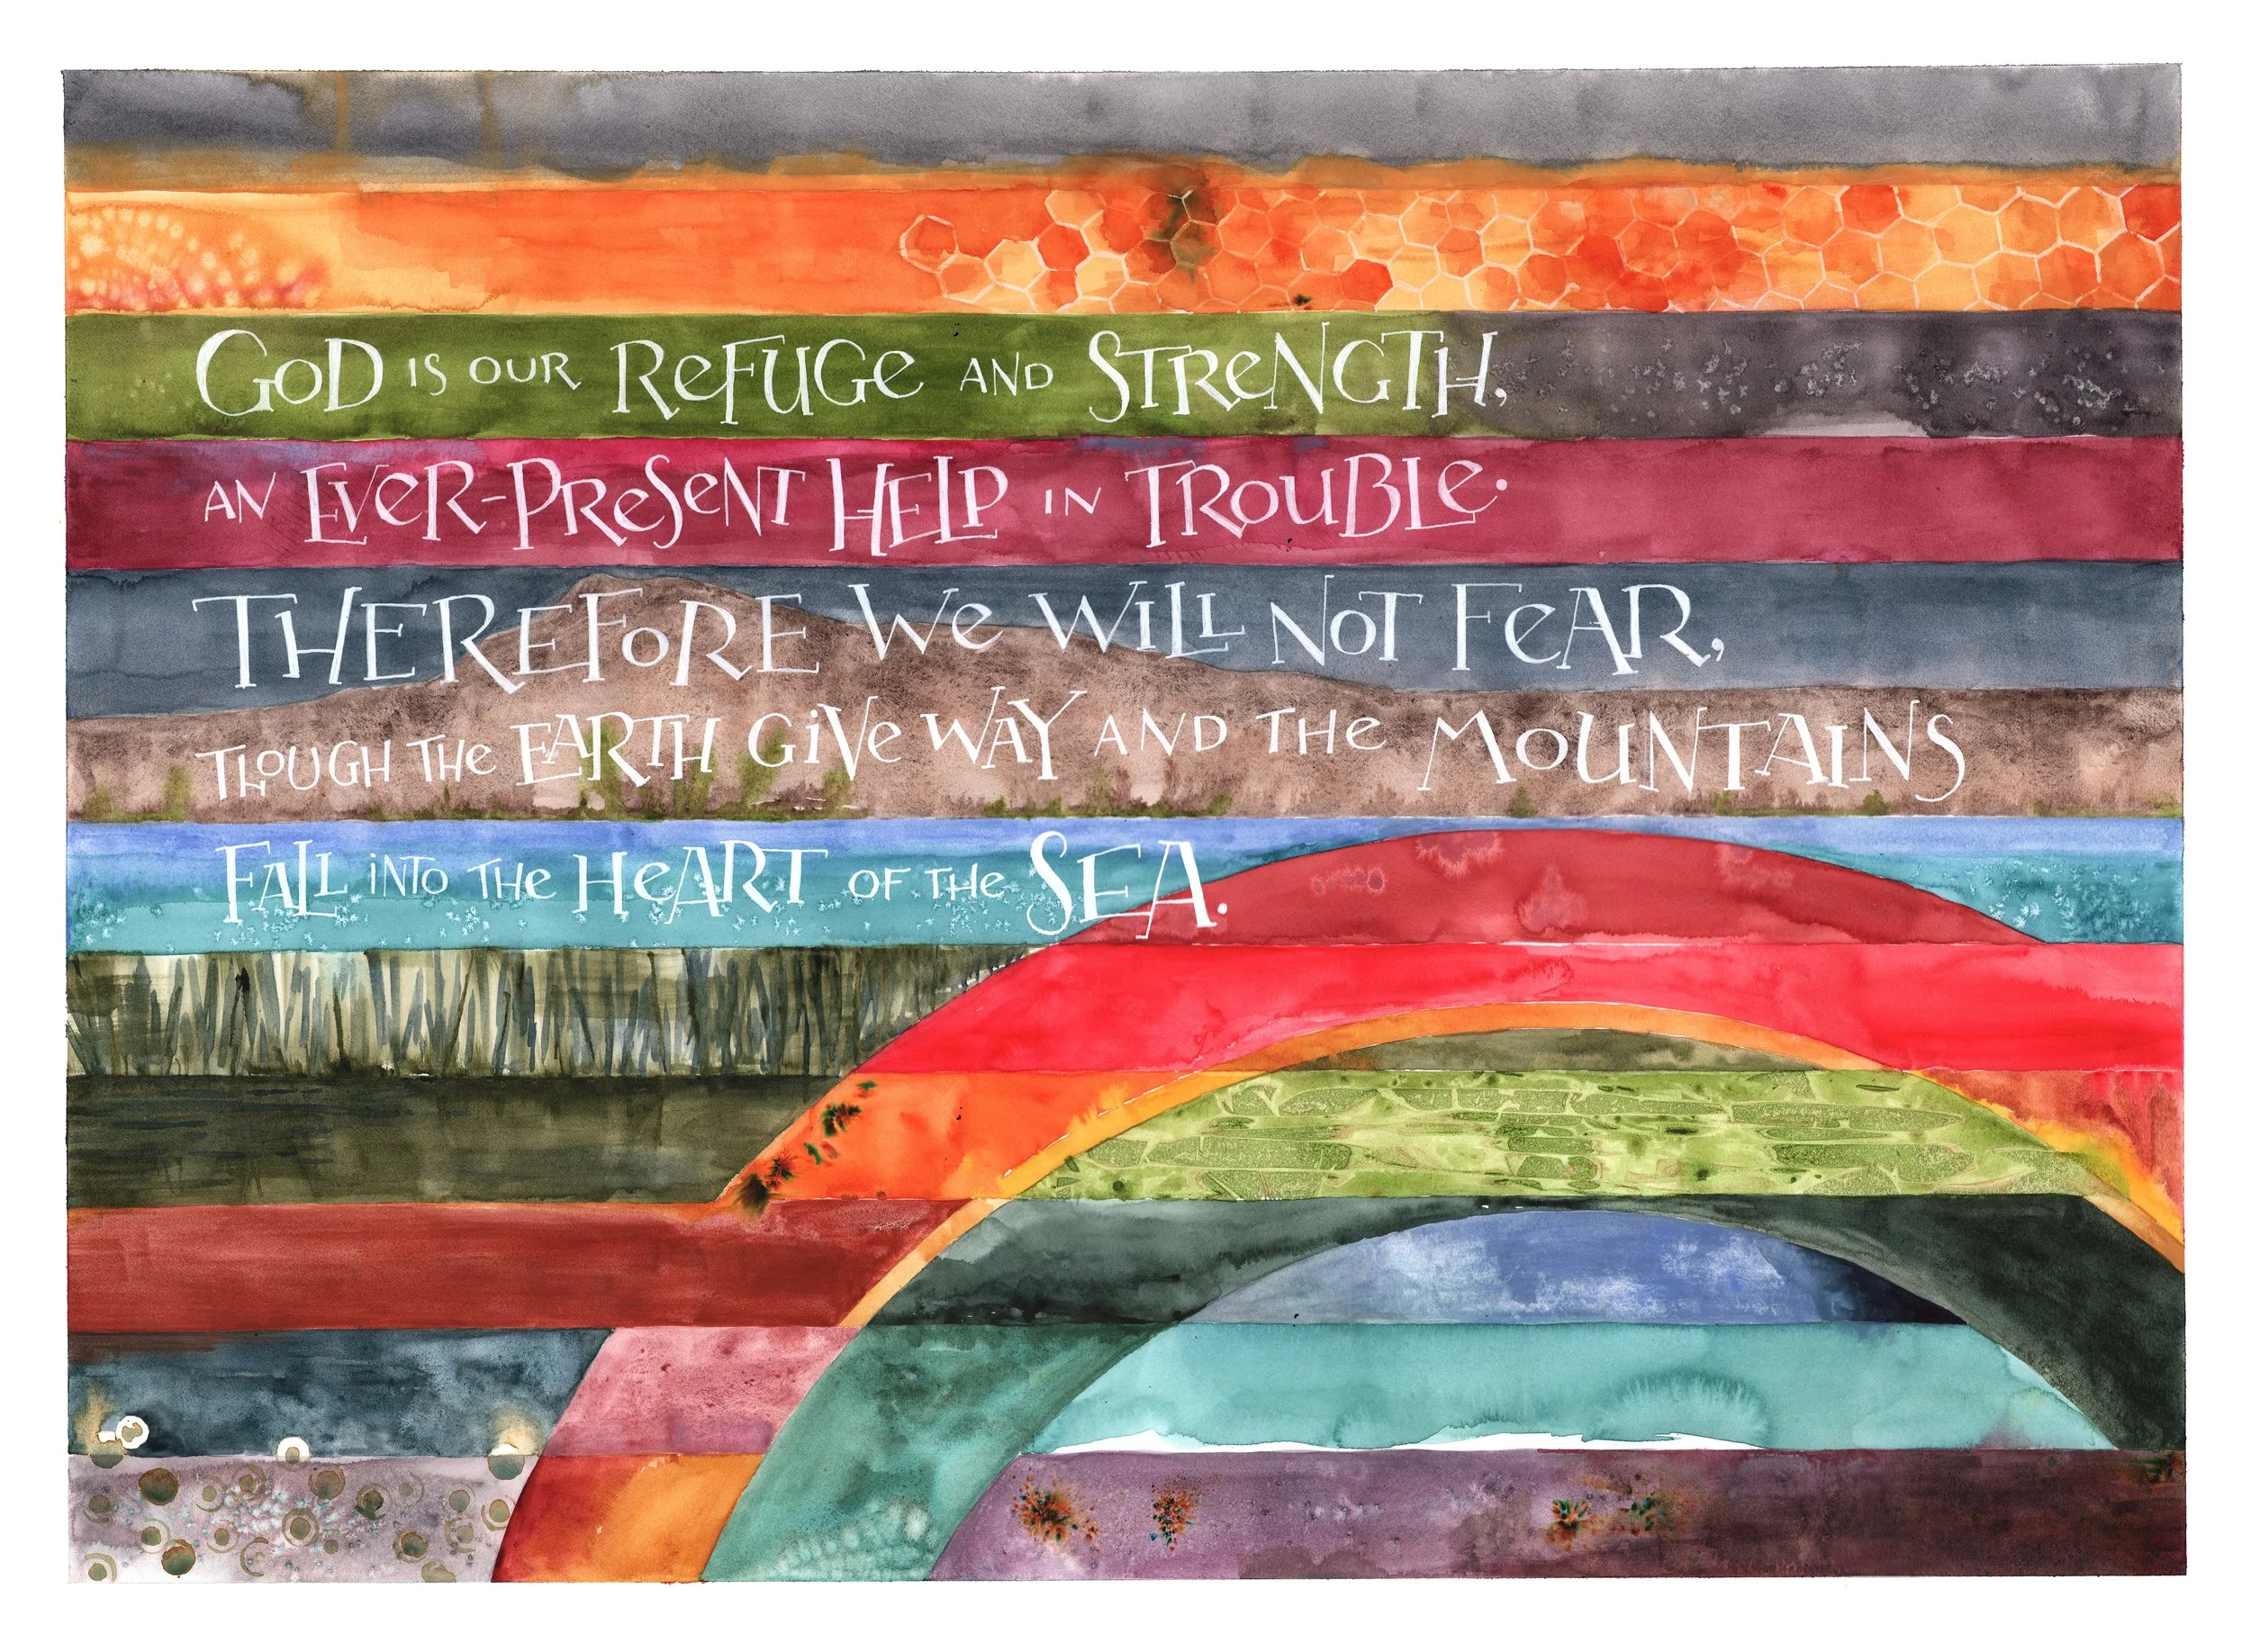 GOD IS OUR REFUGE AND STRENGTH,
AN EVER-PRESENT HELP IN TROUBLE.
THEREFORE WE WILL NOT FEAR,
THOUGH THE EARTH GIVE WAY AND THE MOUNTAINS
FALL INTO THE HEART OF THE SEA.